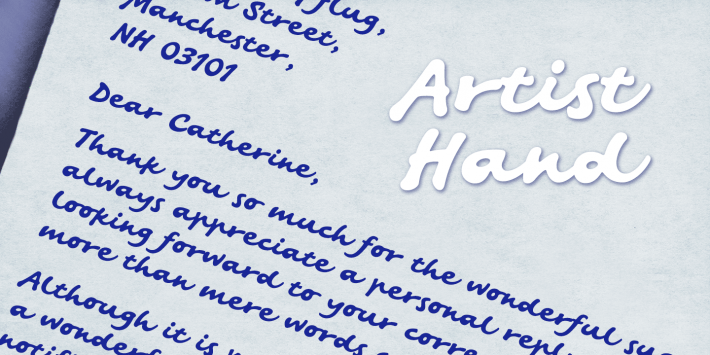 flug,
Street,
Manchester,
NH 03101
Dear Catherine,
Thank you so much for the wonderful
always appreciate a personal
looking forward to your
more than mere words
Although it is
a
Artist
Hand